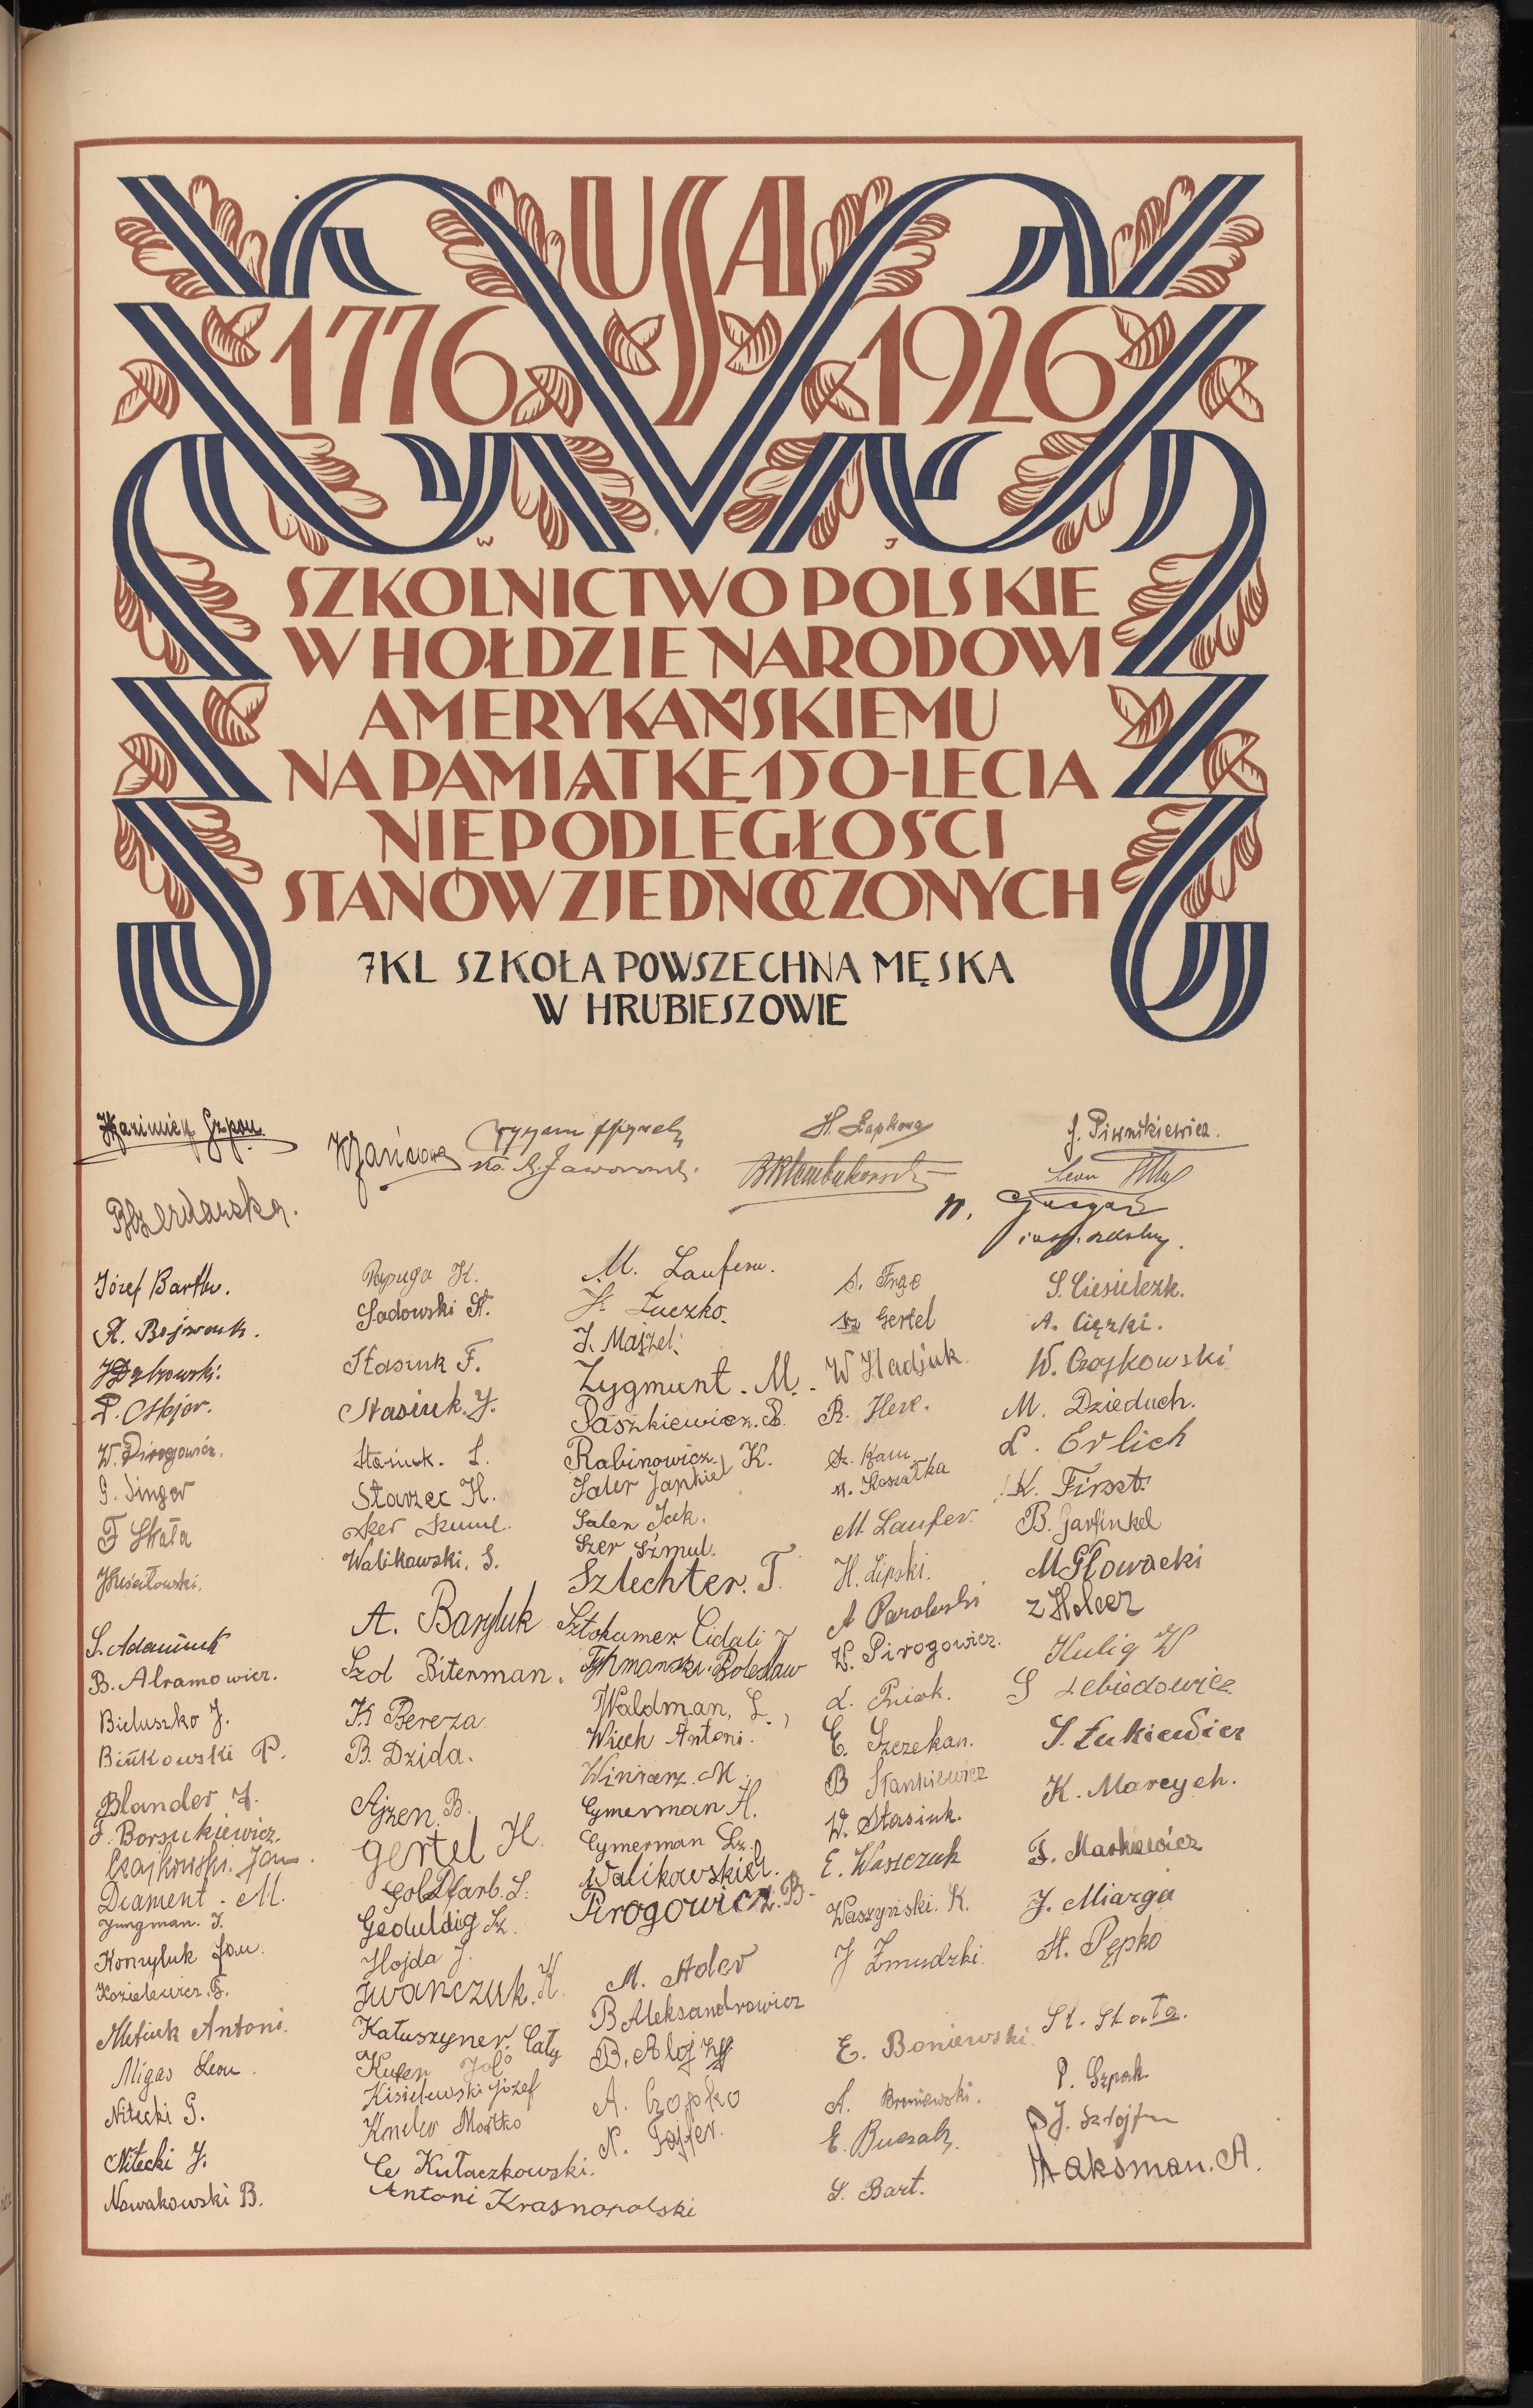 USA
1776 1926
W J
SZKOLNICTWO POLSKIE
W HOŁDZIE NARODOWI
AMERYKAŃSKIEMU
NA PAMIĄTKĘ 150-LECIA
NIEPODLEGŁOŚCI
STANÓW ZJEDNOCZONYCH
7KL SZKOŁA POWSZECHNA MĘSKA
W HRUBIESZOWIE
J. Piwnikiewicz.
Leon
Józef Bartk.
P. Osijor.
W. Pirogowicz.
G. Singer
F Skała
S. Adamiuk
B. Abramowicz.
Bieluszko J.
Bińkowski P.
Blander J.
F. Borsukiewicz.
Czajkowski. Jan.
Diament. M.
Jungman. J.
Konyluk Jan.
Kozielewicz. F.
Metiuk Antoni.
Migas Leon.
Nitecki G.
Nitecki J.
Nowakowski B.
Papuga K.
Sadowski St.
Stasiuk F.
Stasiuk. J.
Stasiuk. S.
Starzec H.
Walikowski. S.
A. Baryluk
Szol Biterman.
K Bereza
B. Dzida.
Ajzen B.
Gertel H.
Goldfarb. S.
Geduldig Sz.
Hojda J.
Iwanczuk. K.
Kałuszyner. Cały
Kisielewski Józef
Kneler Mośko
Cz Kułaczkowski.
Antoni Krasnopolski
M. Lauferu.
J. Łuczko.
J. Majzel.
Zygmunt. M.
Paszkiewicz. B.
Rabinowicz. K.
Saler Jankiel
Salen Jck.
Szer Szmul.
Szlechter. T.
Sztokamer Cidali J
Tyhmanski. Bolesław
Waldman, L.,
Wiech Antoni.
Winiarz. M.
Cymerman H.
Cymerman Sz.
Walikowskie L.
Pirogowicz. B.
M. Adler
B Aleksandrowicz
B. Alojzy
A. Czopko
N. Fajfer.
S. Frąc
Sz Gertel
W Hadjuk.
R. Herc.
Sz. Kam
M. Koszałka
M. Laufer.
H. Lipski.
A Parolewski
W. Pirogowicz.
L. Pniok.
E. Szczekan.
B Stankiewicz
W. Stasiuk.
E. Waszczuk
Waszyński. K.
J Żmudzki.
E. Boniewski.
A. Broniewski.
E. Buczak.
S. Bart.
S. Ciesielczk.
A. Ciężki.
W. Czajkowski
M. Dzieduch.
L. Erlich
K. Firszt.
B. Garfinkel
M Głowacki
Z Holcer
Kulig W
S Lebiedowicz
S. Łukiewicz
K. Marcych.
F. Markiewicz
J. Miarga
H. Pępko
St. Skota.
P. Szpak.
J. Sztojfm
Maksman. A.